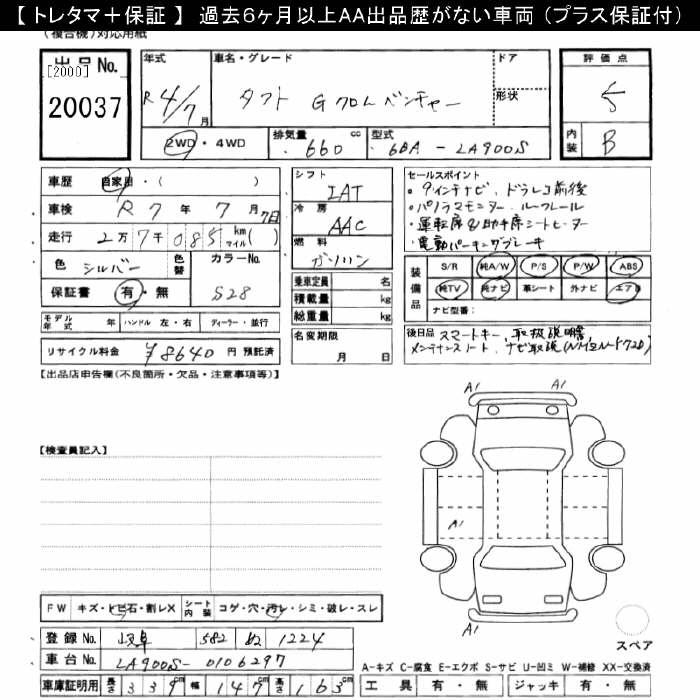 【 トレタマ＋保証 】 過去6ヶ月以上AA出品歴がない車両（プラス保証付）
(複合機) 対応用紙
出品No.
[2000]
20037
年式
R4/7月
車名・グレード
タフト Gクロムベンチャー
ドア
形状
評価点
5
内装 B
2WD・4WD
排気量 660 cc
型式 6BA - LA900S
車歴 自家用・( )
車検 R 7 年 7 月 7日
走行 2万7千085 km マイル( )
色 シルバー 色替
カラーNo. S28
保証書 有・無
シフト
IAT
冷房
AAC
燃料
ガソリン
乗車定員 名
積載量 kg
総重量 kg
セールスポイント
・9インチナビ、ドラレコ前後
・パノラマモニター、ルーフレール
・運転席&助手席シートヒーター
・電動パーキングブレーキ
装備品
S/R 純A/W P/S P/W ABS
純TV 純ナビ 革シート 外ナビ エアB
ナビ型番：
モデル年式 年 ハンドル 左・右 ディーラー・並行
名変期限
月 日
後日品 スマートキー、取扱説明書
メンテナンスノート、ナビ取説(NMZN-Y72D)
リサイクル料金 ¥8640 円 預託済
【出品店申告欄(不良箇所・欠品・注意事項等)】
A1 A1
【検査員記入】
A1
FW キズ・トビ石・割レX シート内装 コゲ・穴・汚レ・シミ・破レ・スレ
登録No. 岐阜 582 ぬ 1224
車台No. LA900S- 0106297
車庫証明用 長さ 339cm 幅 147cm 高さ 163cm
A1 A1
スペア
A-キズ C-腐食 E-エクボ S-サビ U-凹ミ W-補修 XX-交換済
工具 有・無 ジャッキ 有・無